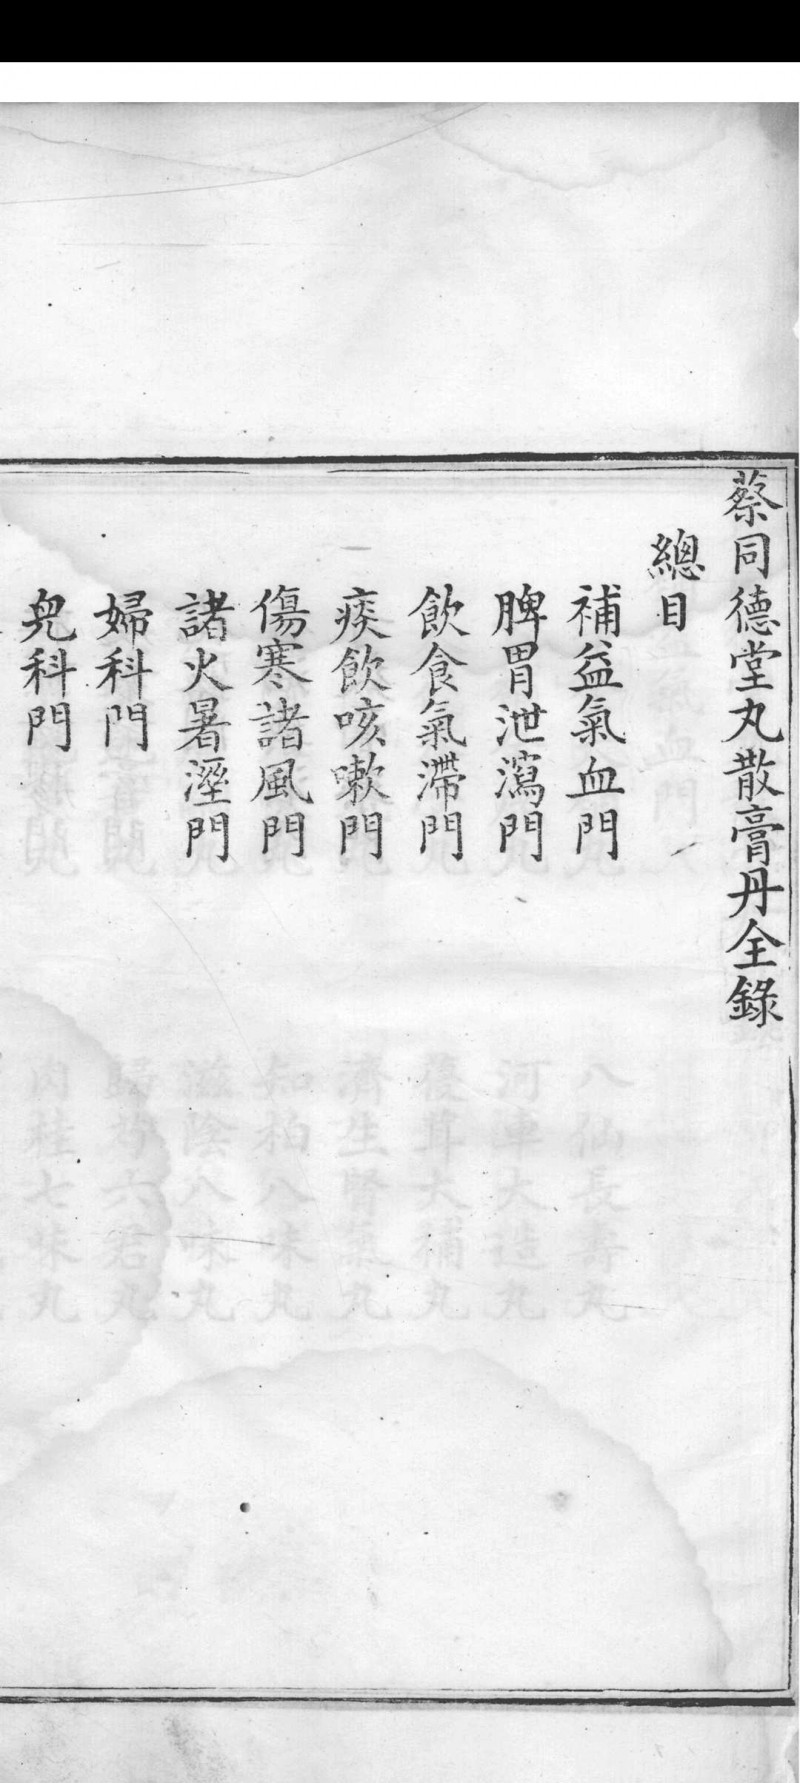 蔡同德堂丸散膏丹全錄
總目
補益氣血門
脾胃泄瀉門
飲食氣滯門
痰飲咳嗽門
傷寒諸風門
諸火暑溼門
婦科門
兒科門